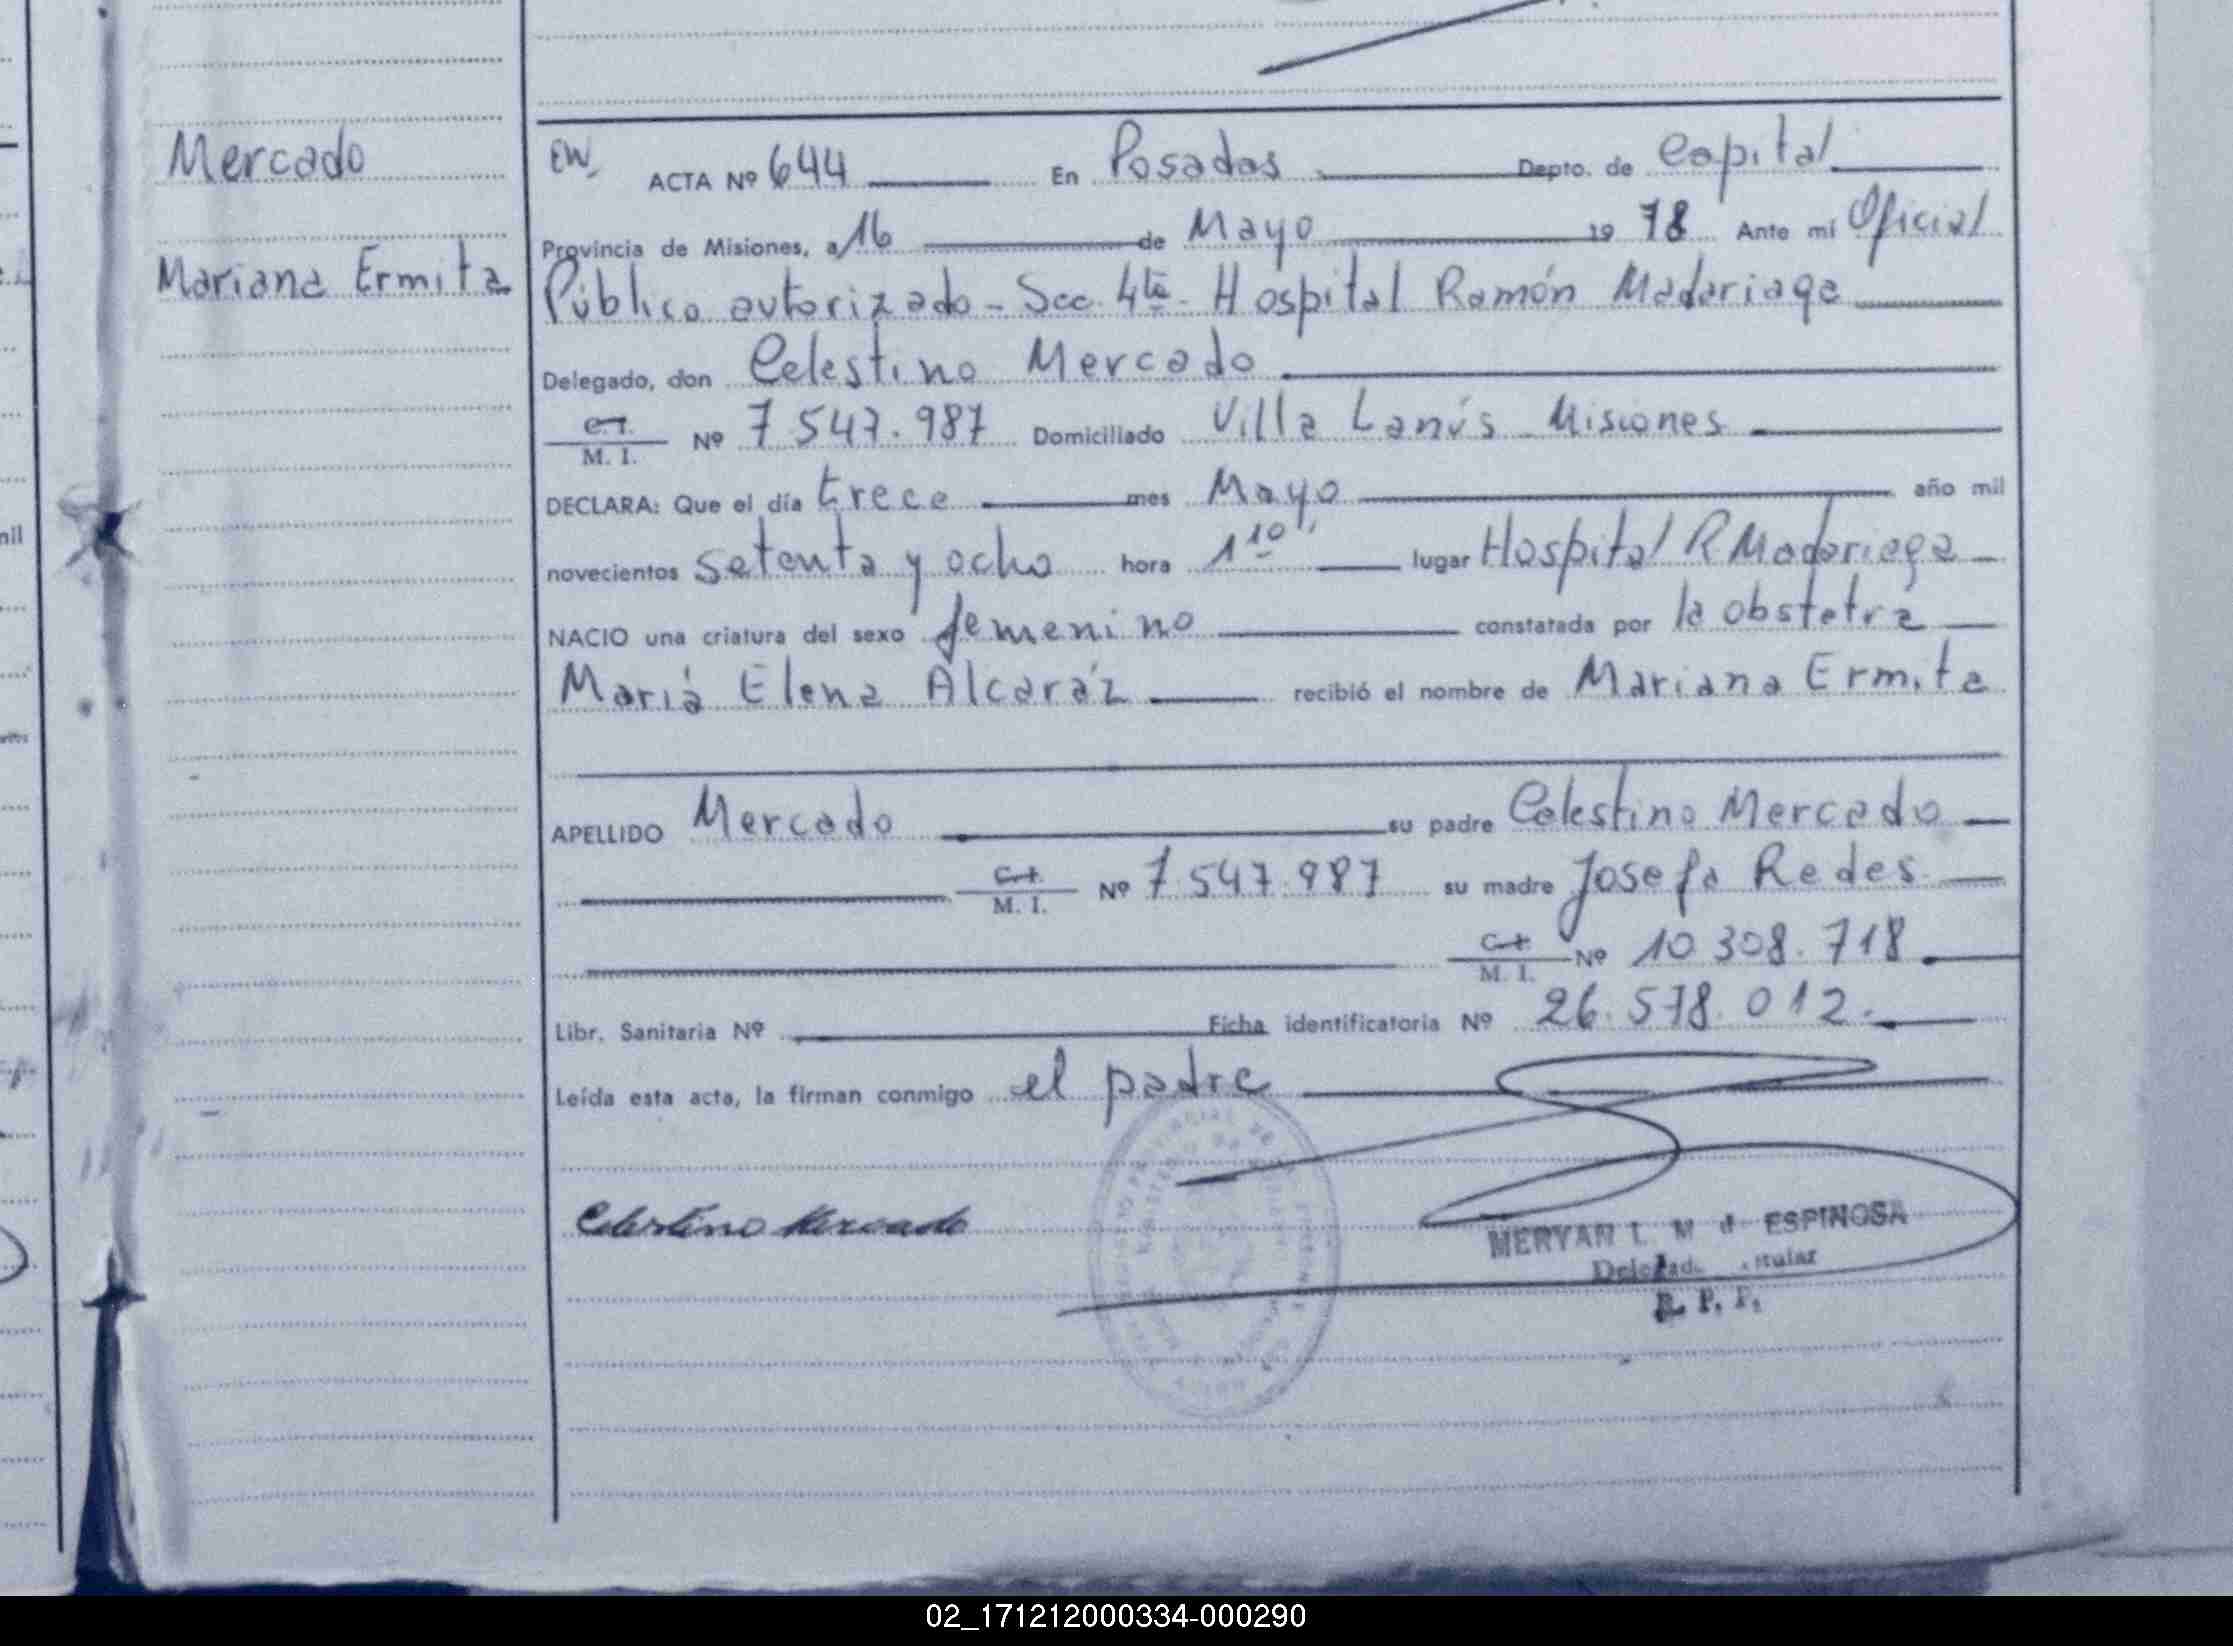 Mercado
Mariana Ermita
EW. ACTA Nº 644 En Posadas Depto. de Capital
Provincia de Misiones, a 16 de Mayo 1978 Ante mí Oficial
Público autorizado - Sec. 4ta - Hospital Ramón Madariaga
Delegado, don Celestino Mercado
C.I.
M. I. Nº 7.547.987 Domiciliado Villa Lanús - Misiones
DECLARA: Que el día trece mes Mayo año mil
novecientos setenta y ocho hora 1 10 lugar Hospital R Madariaga
NACIO una criatura del sexo femenino constatada por la obstetra
María Elena Alcaráz recibió el nombre de Mariana Ermita
APELLIDO Mercado su padre Celestino Mercado
C.I.
M. I. Nº 7.547.987 su madre Josefa Redes
C.I.
M. I. Nº 10.308.718
Libr. Sanitaria Nº Ficha identificatoria Nº 26.578.012.
Leída esta acta, la firman conmigo el padre
Celestino Mercado
MERYAN L. M d ESPINOSA
R. P. P.
02_171212000334-000290